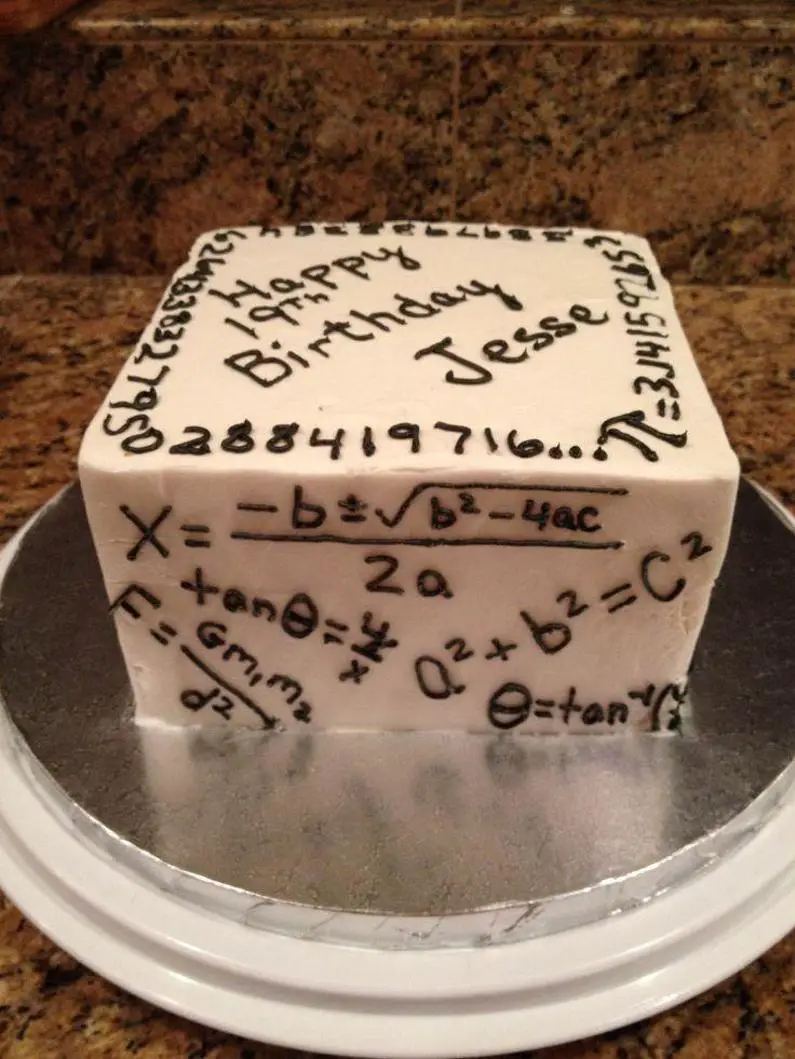 Happy
19th
Birthday
Jesse
π=3.141592653
26433832795
0288419716...
X= -b±√b²-4ac
2a
tanθ=
x
a²+b²=C²
F= Gm₁m₂
d²
θ=tan⁻¹(